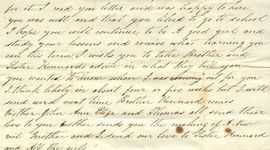 for it I read you letter and was happy to hear
you was well and that you liked to go to school
I hope you will continue to be A good girl and
study your lessons and receive what learning you
can this term I wish you to take Brother and
Sister Kennard advice in what they
you wanted to know when I was coming out for you
I think likely in about four or five weeks but I will
send word next time Brother Kennard comes
Mother John Ann Eliza and Thomas all send their
love to you Mother sends you the making of A
Mother and I send our love to Sister Kennard
and All the girls